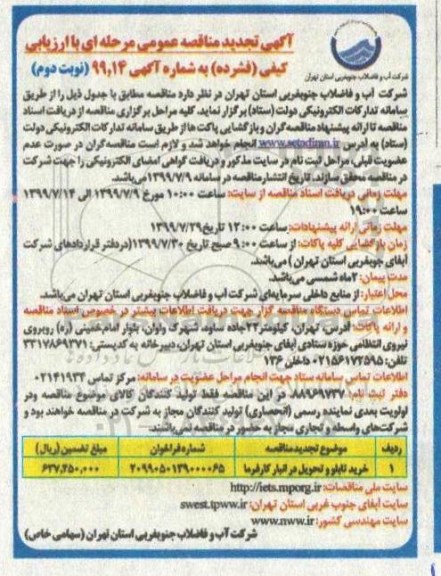 آگهی تجدید مناقصه عمومی مرحله ای با ارزیابی
کیفی (فشرده) به شماره آگهی ۹۹,۱۴ (نوبت دوم)
شرکت آب و فاضلاب جنوبغربی استان تهران
شرکت آب و فاضلاب جنوبغربی استان تهران در نظر دارد مناقصه مطابق با جدول ذیل را از طریق
سامانه تدارکات الکترونیکی دولت (ستاد) برگزار نماید. کلیه مراحل برگزاری مناقصه از دریافت اسناد
مناقصه تا ارائه پیشنهاد مناقصه گران و بازگشایی پاکت ها از طریق سامانه تدارکات الکترونیکی دولت
(ستاد) به آدرس www.setadiran.ir انجام خواهد شد و لازم است مناقصه گران در صورت عدم
عضویت قبلی، مراحل ثبت نام در سایت مذکور و دریافت گواهی امضای الکترونیکی را جهت شرکت
در مناقصه محقق سازند. تاریخ انتشار مناقصه در سامانه ۱۳۹۹/۷/۹ می‌باشد.
مهلت زمانی دریافت اسناد مناقصه از سایت: ساعت ۱۰:۰۰ مورخ ۱۳۹۹/۷/۹ الی ۱۳۹۹/۷/۱۴
ساعت ۱۹:۰۰
مهلت زمانی ارائه پیشنهادات: از ساعت ۱۲:۰۰ تاریخ ۱۳۹۹/۷/۲۹
زمان بازگشایی کلیه پاکات: از ساعت ۹:۰۰ صبح تاریخ ۱۳۹۹/۷/۳۰ (در دفتر قراردادهای شرکت
آبفای جنوبغربی استان تهران) می‌باشد.
مدت پیمان: ۲ ماه شمسی می‌باشد.
محل اعتبار: از منابع داخلی سرمایه‌ای شرکت آب و فاضلاب جنوبغربی استان تهران می‌باشد.
اطلاعات تماس دستگاه مناقصه گزار جهت دریافت اطلاعات بیشتر در خصوص اسناد مناقصه
و ارائه پاکات: آدرس: تهران، کیلومتر ۲۳ جاده ساوه، شهرک واوان، بلوار امام خمینی (ره) روبروی
نیروی انتظامی حوزه ستادی آبفای جنوبغربی استان تهران، دبیرخانه به کدپستی: ۳۳۱۷۸۶۹۳۷۱
تلفن: ۰۲۱۵۶۱۷۲۵۹۵ داخلی ۱۳۶
اطلاعات تماس سامانه ستاد جهت انجام مراحل عضویت در سامانه: مرکز تماس ۰۲۱۴۱۹۳۴
دفتر ثبت نام: ۸۸۹۶۹۷۳۷ در این مناقصه فقط تولید کنندگان کالای موضوع مناقصه ودر
اولویت بعدی نماینده رسمی (انحصاری) تولید کنندگان مجاز به شرکت در مناقصه خواهند بود و
شرکت‌های واسطه و تجاری مجاز به حضور در مناقصه نمی‌باشند.
ردیف موضوع تجدید مناقصه شماره فراخوان مبلغ تضمین (ریال)
۱ خرید تابلو و تحویل در انبار کارفرما ۲۰۹۹۰۵۰۱۳۹۰۰۰۰۶۵ ۶۳۷,۲۵۰,۰۰۰
سایت ملی مناقصات: http://iets.mporg.ir
سایت آبفای جنوب غربی استان تهران: swest.tpww.ir
سایت مهندسی کشور: www.nww.ir
شرکت آب و فاضلاب جنوبغربی استان تهران (سهامی خاص)